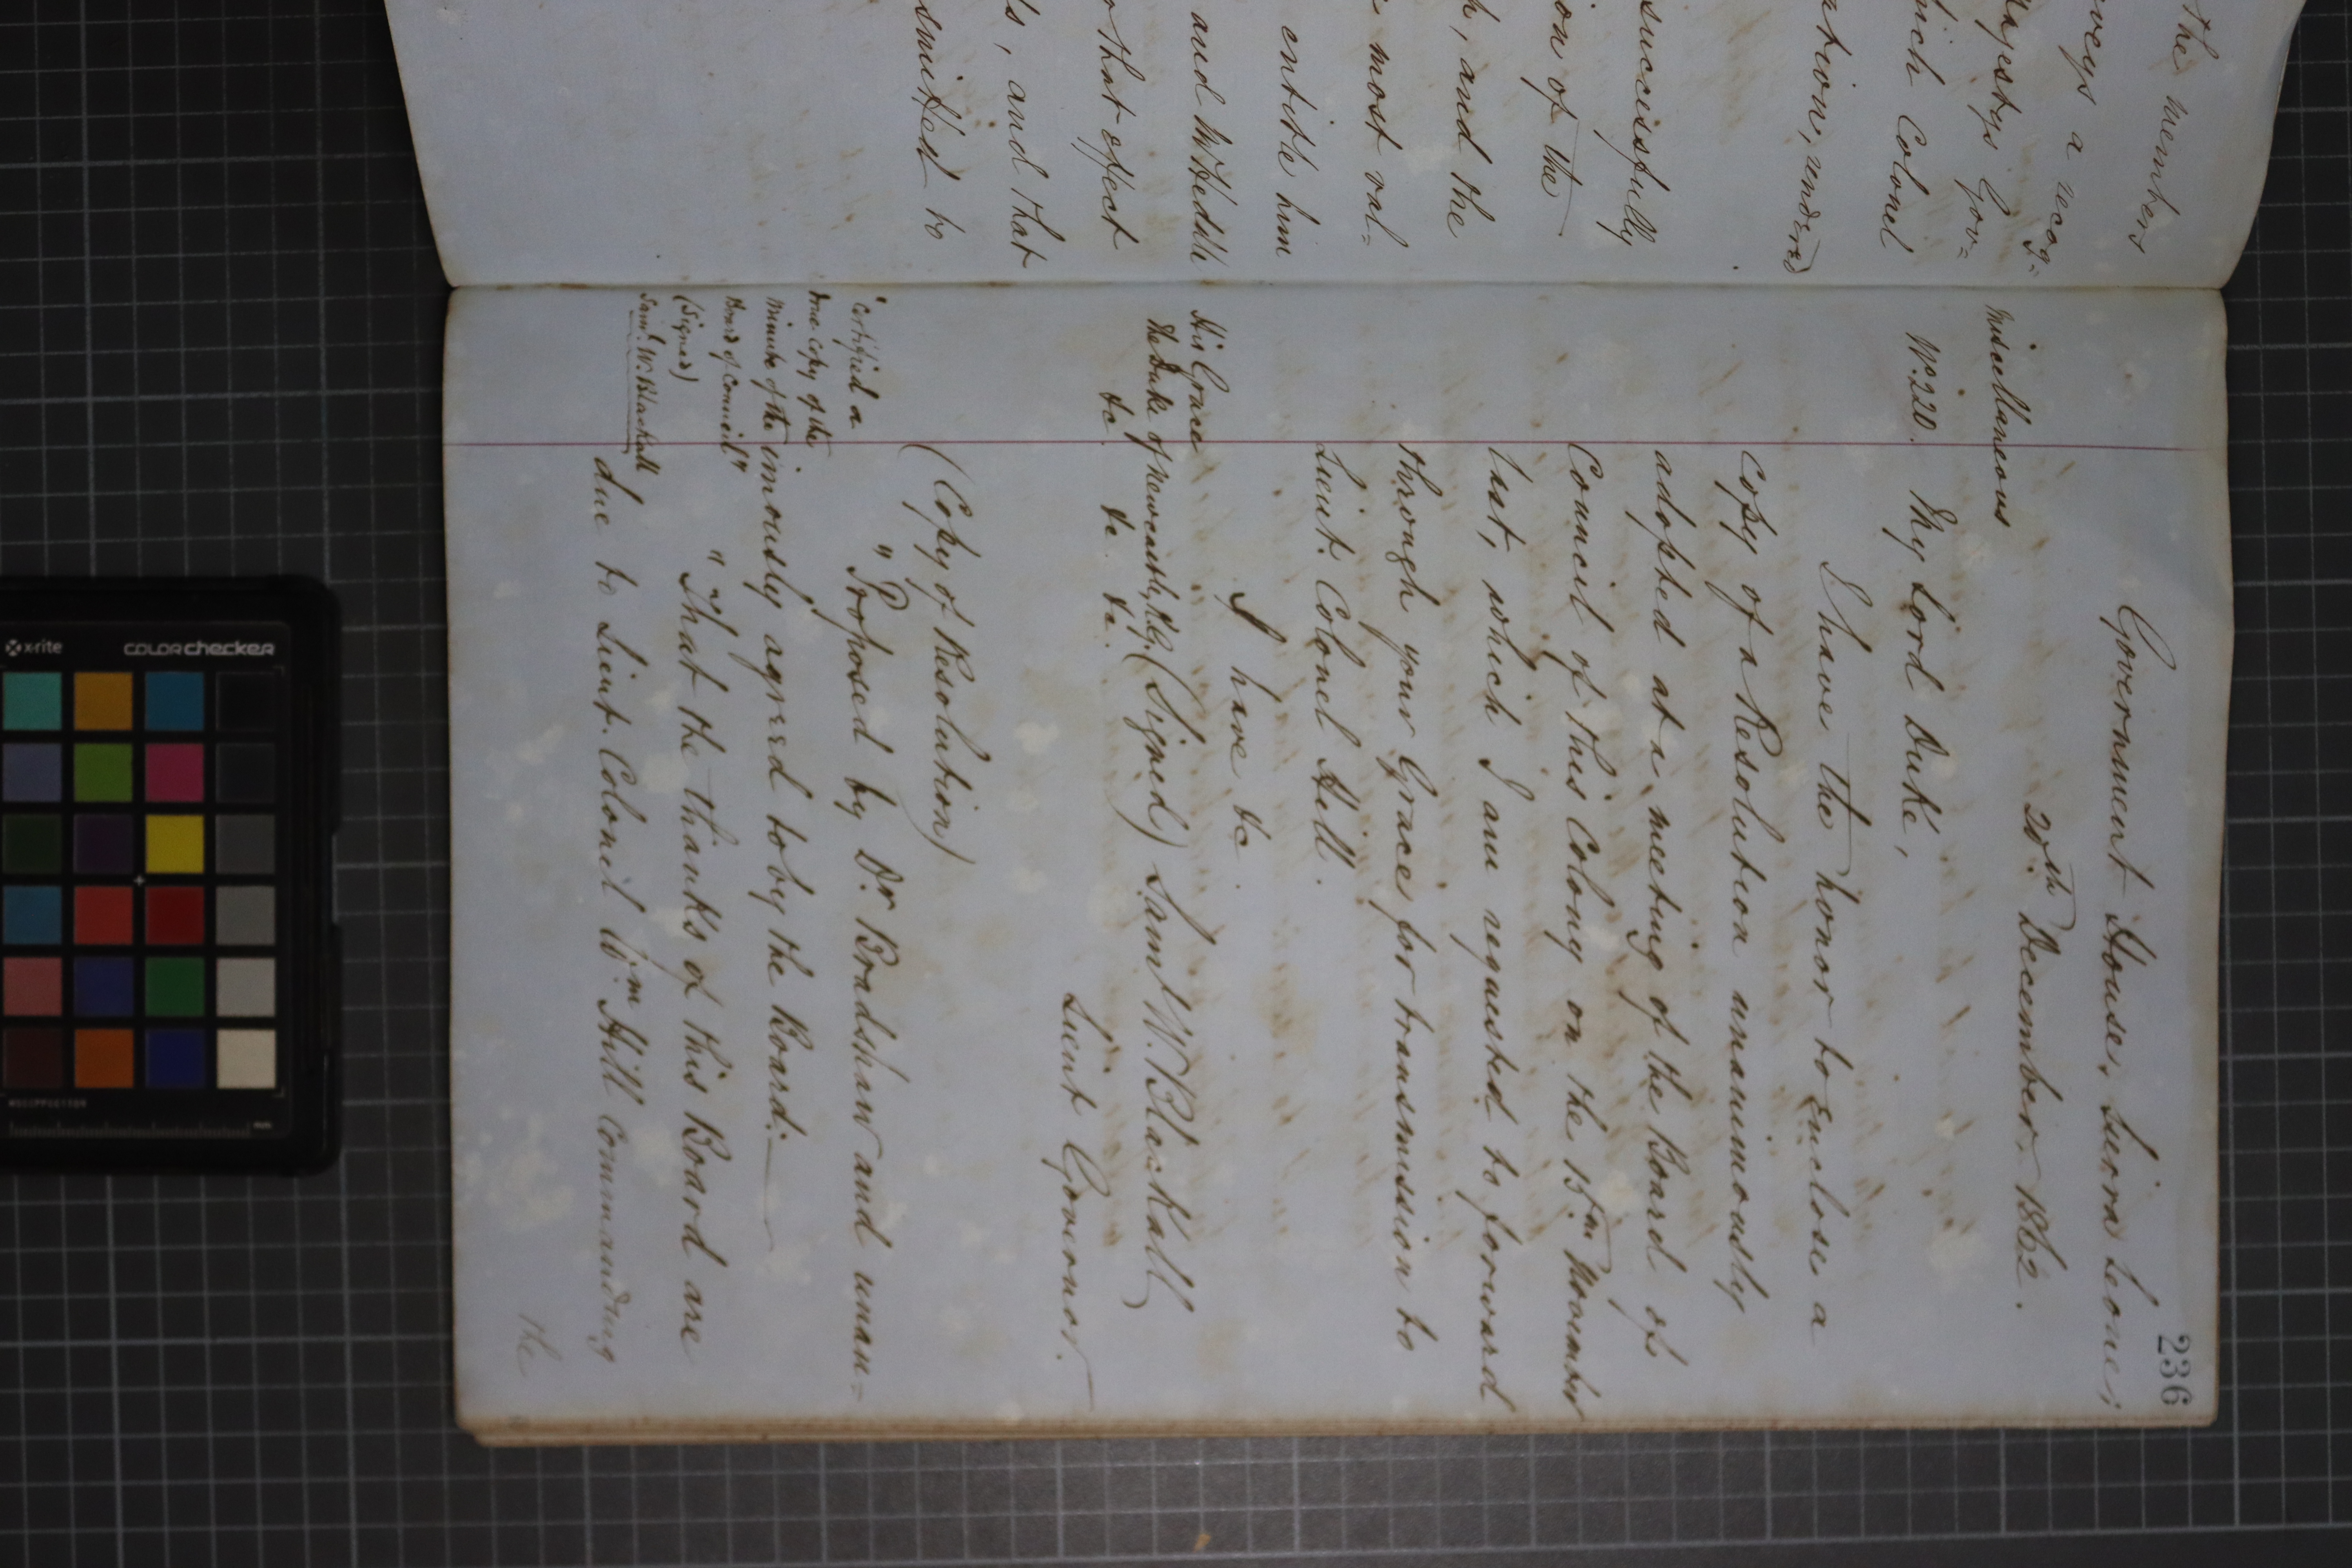 the members
nveys a recog=
Majestys Gov=
hich Colonel
ation, rendered
sucessfully
ion of the
h, and the
most val=
entitle him
and
that effect
s, and that
smitted to
236
Government House, Sierra Leone,
20th December 1862.
Miscellaneous
No. 220. My Lord Duke,
I have the honor to Enclose a
Copy of a Resolution unanimously
adopted at a meeting of the Board of
Council of this Colony on the 15th November
last, which I am requested to forward
through your Grace for transmission to
Lieut. Colonel Hill.
I have &c.
His Grace
the Duke of Newcastle, K.G. (Signed) Saml W. Blackall
&c. &c. &c.
Lieut Governor.
(Copy of Resolution)
"Certified a
true copy of the
Minute of the
Board of Council"
(Signed)
Saml. W. Blackall
" Proposed by Dr. Bradshaw and unan=
imously agreed to by the Board:—
" "That the thanks of this Board are
due to Lieut. Colonel Wm. Hill Commanding
the
x-rite
colorchecker